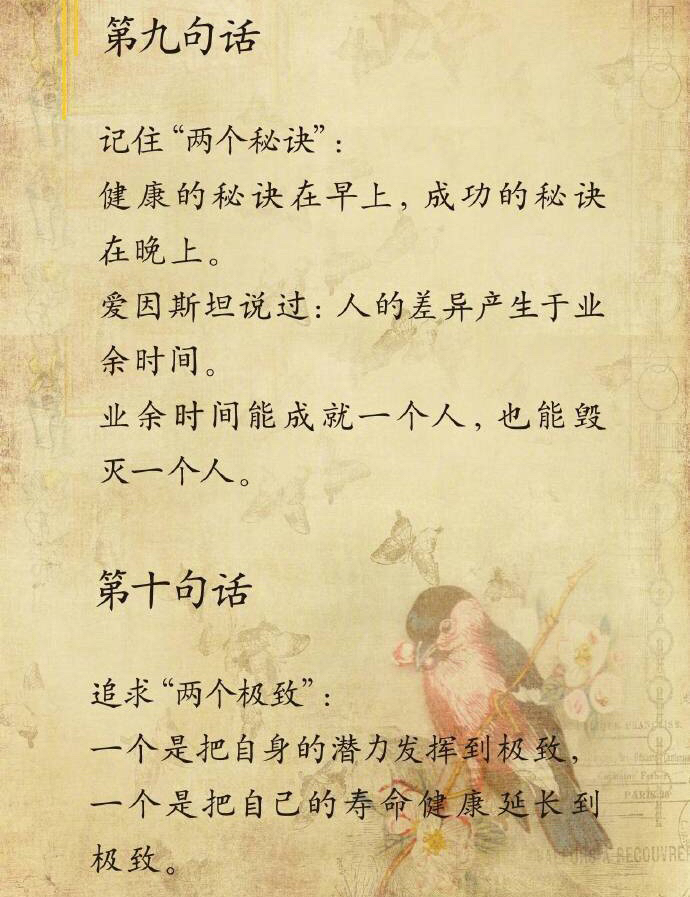 第九句话
记住“两个秘诀”：
健康的秘诀在早上，成功的秘诀
在晚上。
爱因斯坦说过：人的差异产生于业
余时间。
业余时间能成就一个人，也能毁
灭一个人。
第十句话
追求“两个极致”：
一个是把自身的潜力发挥到极致，
一个是把自己的寿命健康延长到
极致。
PARIS
A RECOUVRER